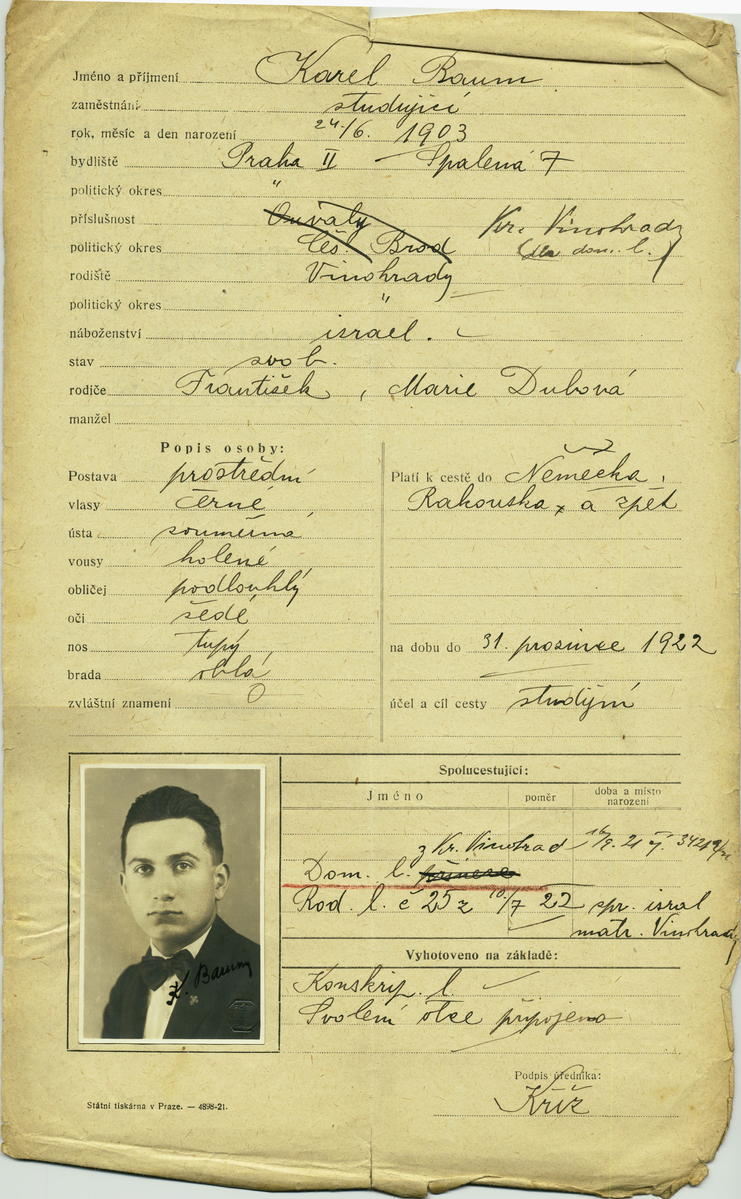 Jméno a příjmení Karel Baum
zaměstnání studující
rok, měsíc a den narození 24/6. 1903
bydliště Praha II – Spálená 7
politický okres "
příslušnost Ouvaly Kr. Vinohrady
politický okres Čes. Brod (dle dom. l.)
rodiště Vinohrady
politický okres "
náboženství israel.
stav svob.
rodiče František, Marie Dubová
manžel
Popis osoby:
Postava prostřední
vlasy černé
ústa souměrná
vousy holené
obličej podlouhlý
oči šedé
nos tupý
brada oblá
zvláštní znamení 0
Platí k cestě do Německa,
Rakouska, a zpět
na dobu do 31. prosince 1922
účel a cíl cesty studijní
K. Baum
Spolucestující:
Jméno poměr doba a místo
narození
z Kr. Vinohrad 16/9. 21
Dom. l.
Rod. l. č 25 z 10/7 22 spr. israel
matr. Vinohrady
Vyhotoveno na základě:
Konskrip. l.
Svolení otce připojeno
Podpis úředníka:
Kříž
Státní tiskárna v Praze. — 4898-21.